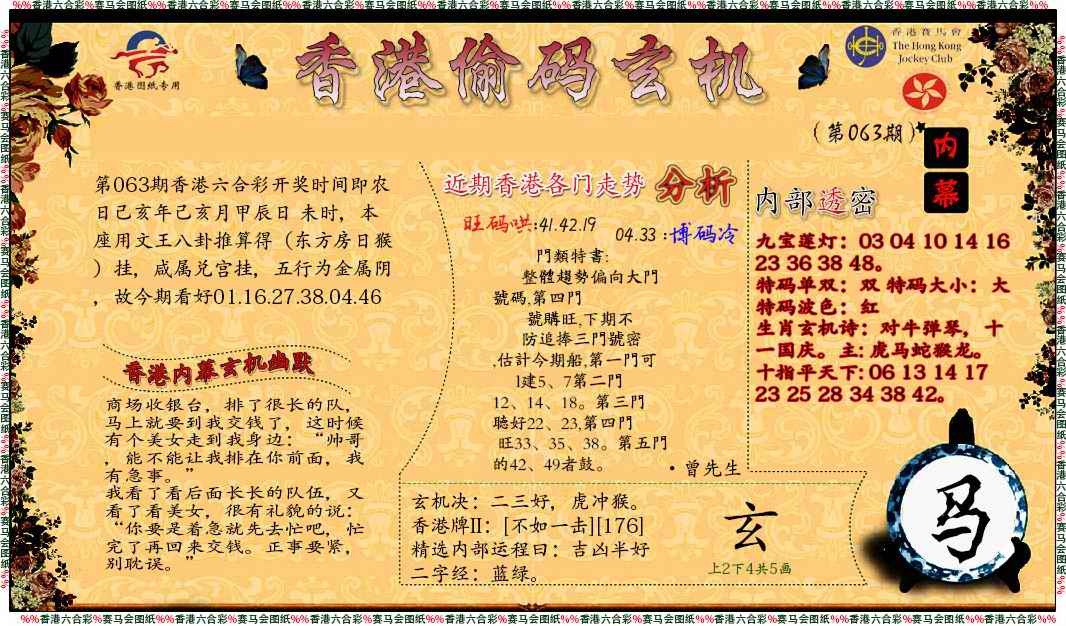 %%香港六合彩%赛马会图纸%%香港六合彩%赛马会图纸%%香港六合彩%赛马会图纸%%香港六合彩%赛马会图纸%%香港六合彩%赛马会图纸%%香港六合彩%赛马会图纸%%香港六合彩%%
香港图纸专用
香港偷码玄机
香港賽馬會
The Hong Kong
Jockey Club
(第063期)
内
幕
第063期香港六合彩开奖时间即农
日己亥年己亥月甲辰日 未时，本
座用文王八卦推算得（东方房日猴
）挂，咸属兑宫挂，五行为金属阴
，故今期看好01.16.27.38.04.46
香港内幕玄机幽默
商场收银台，排了很长的队，
马上就要到我交钱了，这时候
有个美女走到我身边：“帅哥
，能不能让我排在你前面，我
有急事。”
我看了看后面长长的队伍，又
看了看美女，很有礼貌的说：
“你要是着急就先去忙吧，忙
完了再回来交钱。正事要紧，
别耽误。”
近期香港各门走势 分析
旺码哄:41.42.19
04.33 :博码冷
門類特書:
整體趨勢偏向大門
號碼,第四門
號購旺,下期不
防追捧三門號密
,估計今期船,第一門可
1建5、7第二門
12、14、18。第三門
聽好22、23,第四門
旺33、35、38。第五門
的42、49者鼓。
·曾先生
玄机决：二三好，虎冲猴。
香港牌II：[不如一击][176]
精选内部运程曰：吉凶半好
二字经：蓝绿。
玄
上2下4共5画
内部透密
九宝莲灯：03 04 10 14 16
23 36 38 48。
特码单双：双 特码大小：大
特码波色：红
生肖玄机诗：对牛弹琴，十
一国庆。主: 虎马蛇猴龙。
十指平天下: 06 13 14 17
23 25 28 34 38 42。
马
%%香港六合彩%赛马会图纸%%香港六合彩%赛马会图纸%%香港六合彩%赛马会图纸%%香港六合彩%赛马会图纸%%香港六合彩%赛马会图纸%%香港六合彩%赛马会图纸%%香港六合彩%%